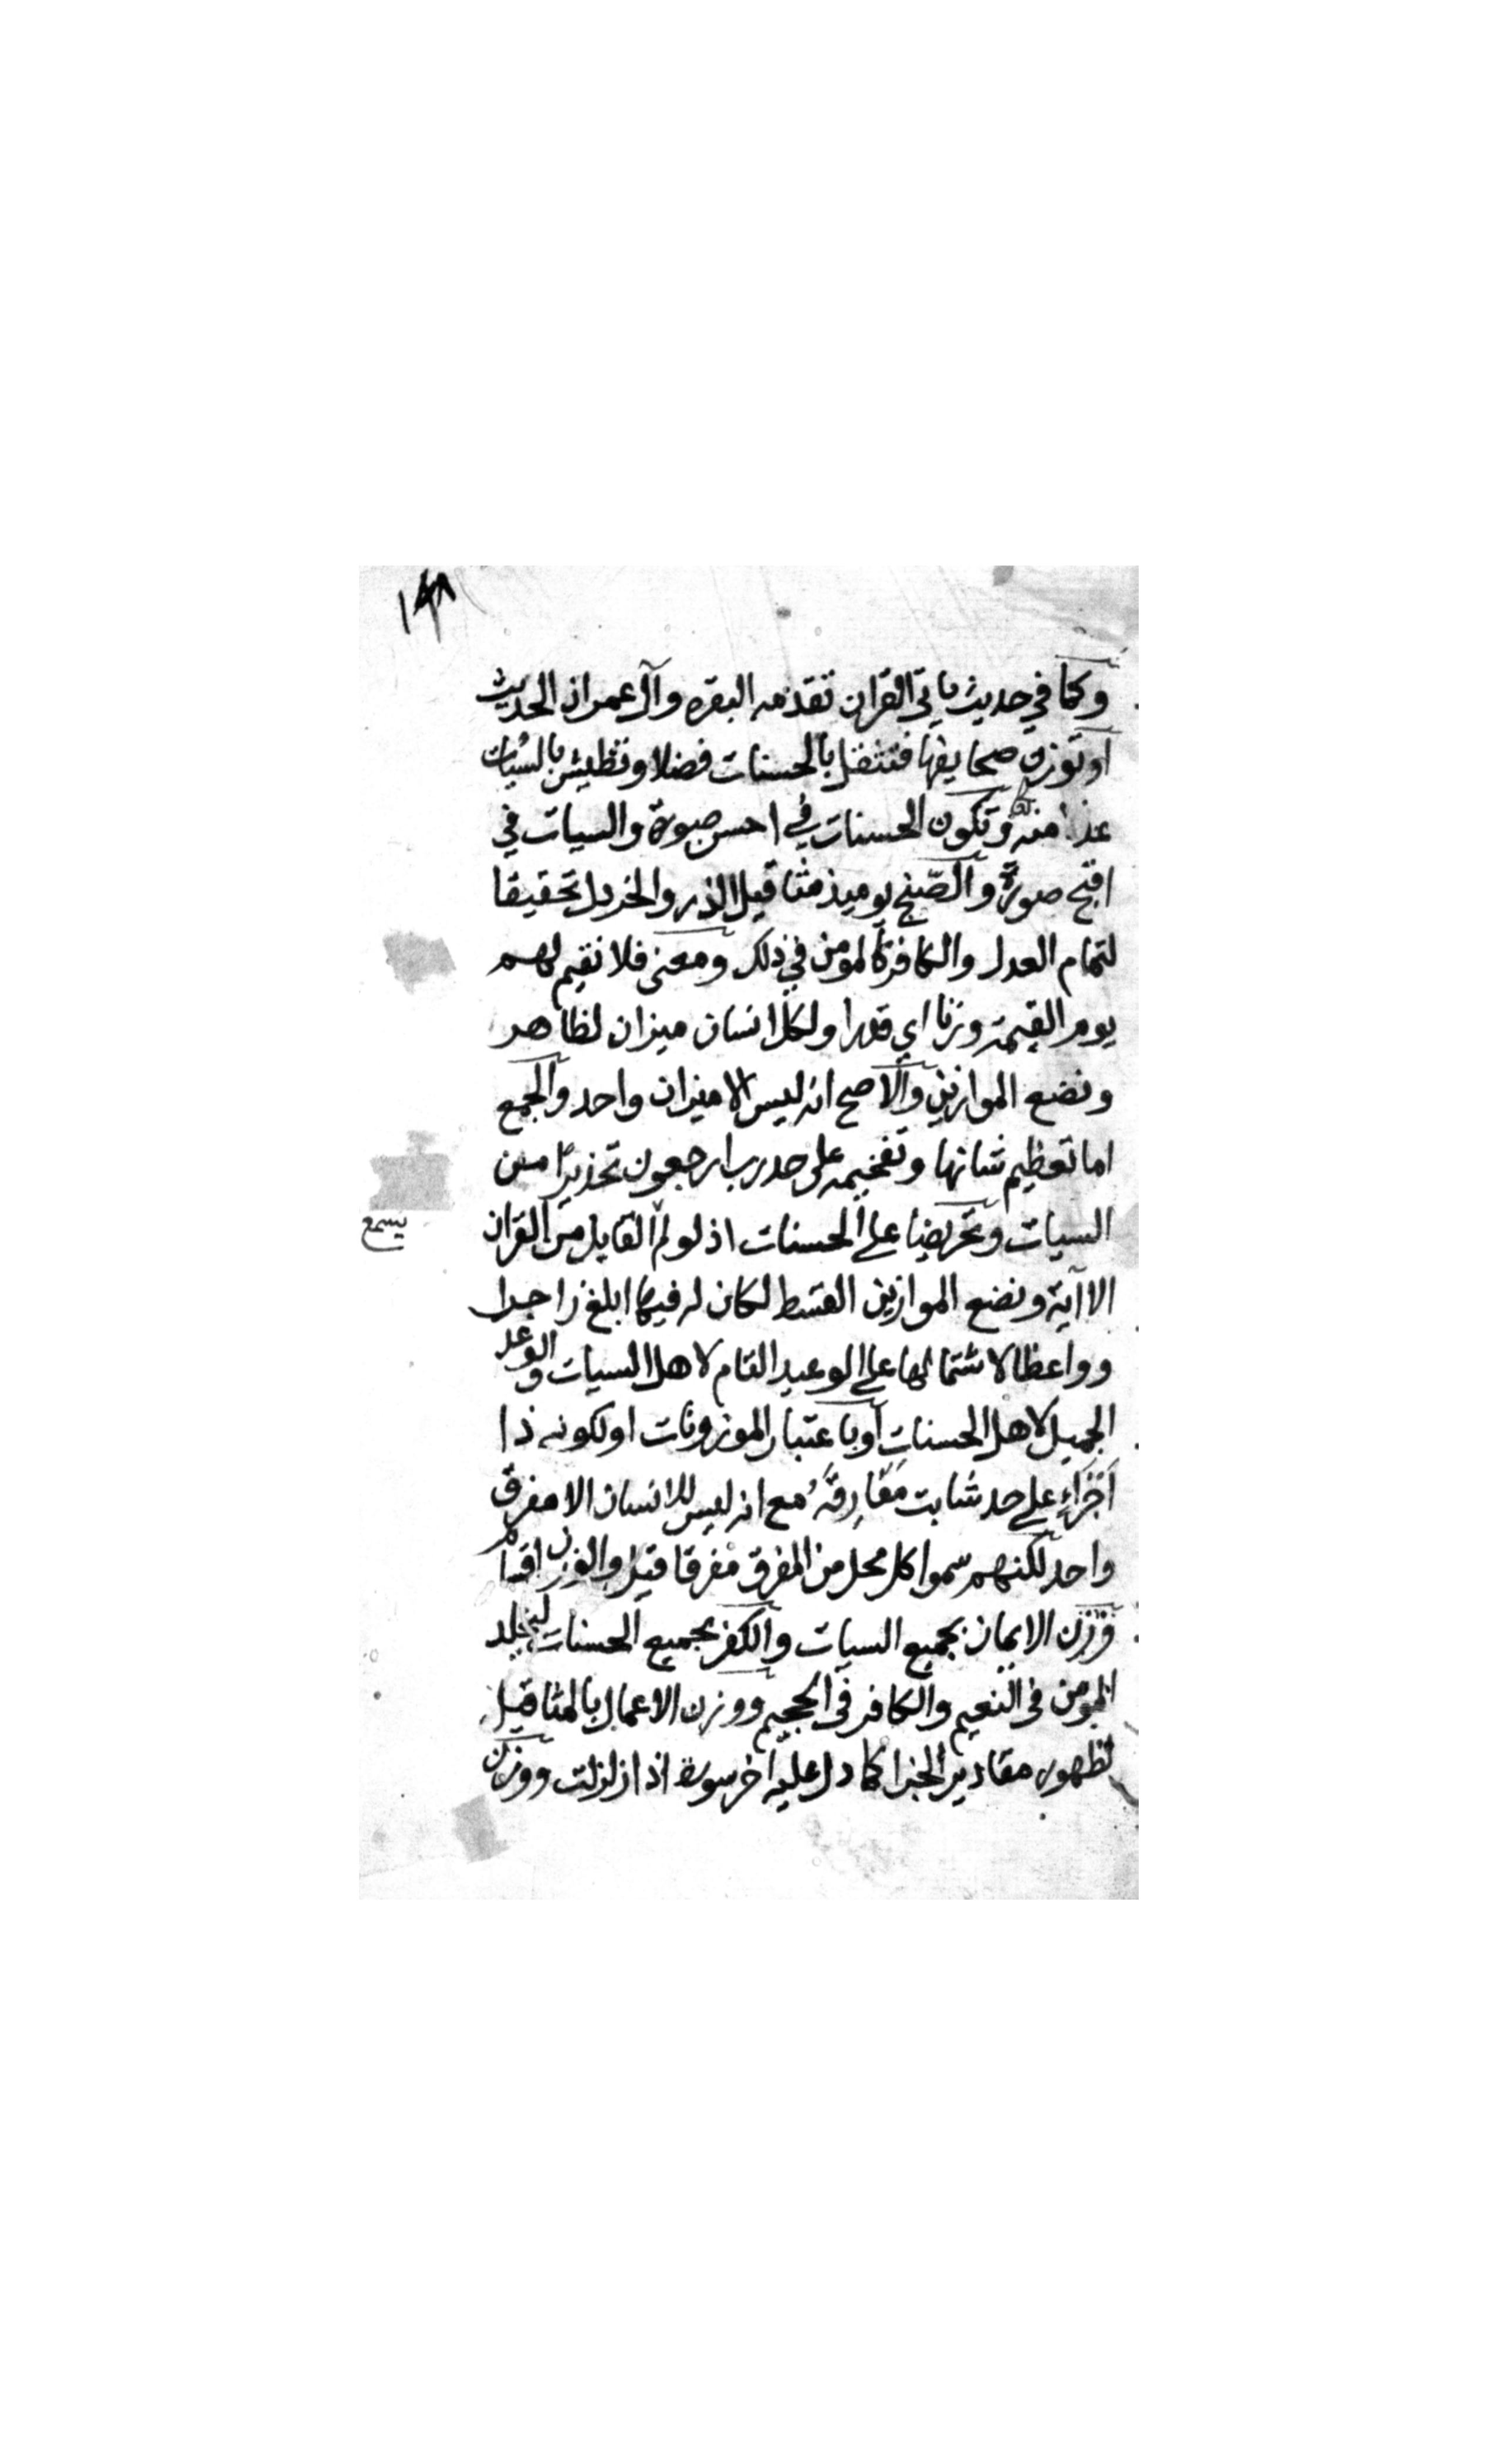 ١٣٨
وكما في حديث ياتي القران تقدمه البقره وآل عمران الحديث
او توزن صحايفها فتثقل بالحسنات فضلا وتطيش بالسيات
عدلا منه وتكون الحسنات في احسن صورة والسيات في
اقبح صورة والصنج يوميذ مثاقيل الذر والخردل تحقيقا
لتمام العدل والكافر كالمومن في ذلك ومعنى فلا نقيم لهم
يوم القيمة وزنا اي قدرا ولكل انسان ميزان لظاهر
ونضع الموازين والاصح انه ليس الا ميزان واحد والجمع
اما تعظيم شانها وتفخيمه على حد رب ارجعون تحذيرًا من
السيات وتحريضا على الحسنات اذ لو لم القايل من القران
يسمع
الا اية ونضع الموازين القسط لكان له فيها ابلغ زاجرا
وواعظا لاشتمالها على الوعيد التام لاهل السيات والوعد
الجميل لاهل الحسنات او باعتبار الموزونات او لكونه ذا
اجزاءٍ على حد شابت مَفَارِقُهُ مع انه ليس للانسان الا مفرق
واحد لكنهم سموا كل محل من المفرق مفرقا قيل والوزن اقسام
فوزن الايمان بجميع السيات والكفر بجميع الحسنات ليخلد
المومن في النعيم والكافر في الجحيم ووزن الاعمال بالمثاقيل
لظهور مقادير الجزا كما دل عليه اخر سورة اذا زلزلت ووزن